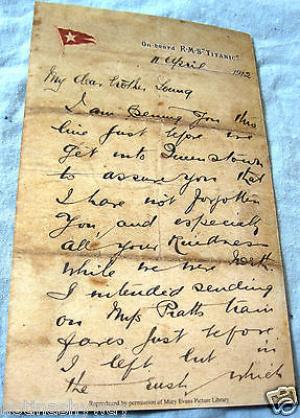 On board R.M.S. "TITANIC"
11 April 1912
My dear brother Young
I am sending you this
line just before we
get into Queenstown
to assure you that
I have not forgotten
you, and especially
all your kindness
while we were North.
I intended sending
on Mrs Pratts train
fares just before
I left but in
the rush which
Reproduced by permission of Mary Evans Picture Library